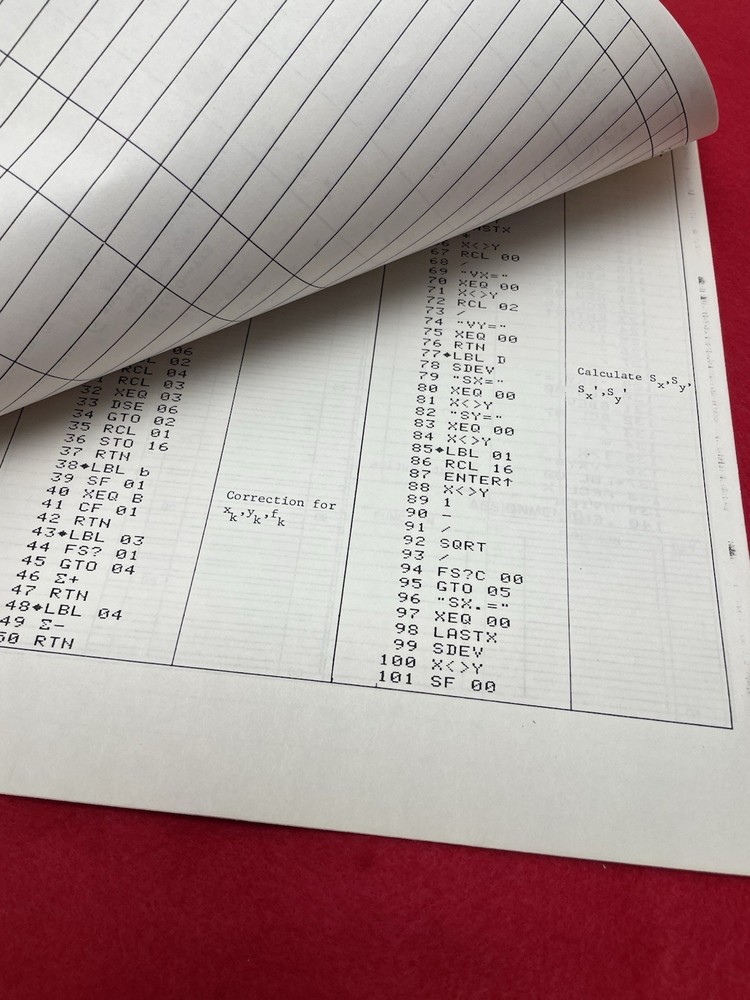 06
02
RCL 04
RCL 03
32 XEQ 03
33 DSE 06
34 GTO 02
35 RCL 01
36 STO 16
37 RTN
38◆LBL b
39 SF 01
40 XEQ B
41 CF 01
42 RTN
43◆LBL 03
44 FS? 01
45 GTO 04
46 Σ+
47 RTN
48◆LBL 04
49 Σ-
50 RTN
Correction for
xk,yk,fk
67 RCL 00
68 /
69 "VX="
70 XEQ 00
71 X<>Y
72 RCL 02
73 /
74 "VY="
75 XEQ 00
76 RTN
77◆LBL D
78 SDEV
79 "SX="
80 XEQ 00
81 X<>Y
82 "SY="
83 XEQ 00
84 X<>Y
85◆LBL 01
86 RCL 16
87 ENTER↑
88 X<>Y
89 1
90 -
91 /
92 SQRT
93 /
94 FS?C 00
95 GTO 05
96 "SX.="
97 XEQ 00
98 LASTX
99 SDEV
100 X<>Y
101 SF 00
Calculate Sx,Sy,
Sx',Sy'